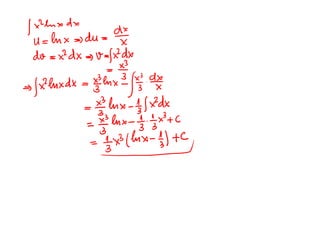 ∫x²lnx dx
u = lnx ⇒ du = dx/x
dv = x²dx ⇒ v = ∫x²dx
= x³/3
⇒ ∫x²lnxdx = x³/3 lnx - ∫ x³/3 dx/x
= x³/3 lnx - 1/3 ∫x²dx
= x³/3 lnx - 1/3 · 1/3 x³ + C
= 1/3 x³ (lnx - 1/3) + C